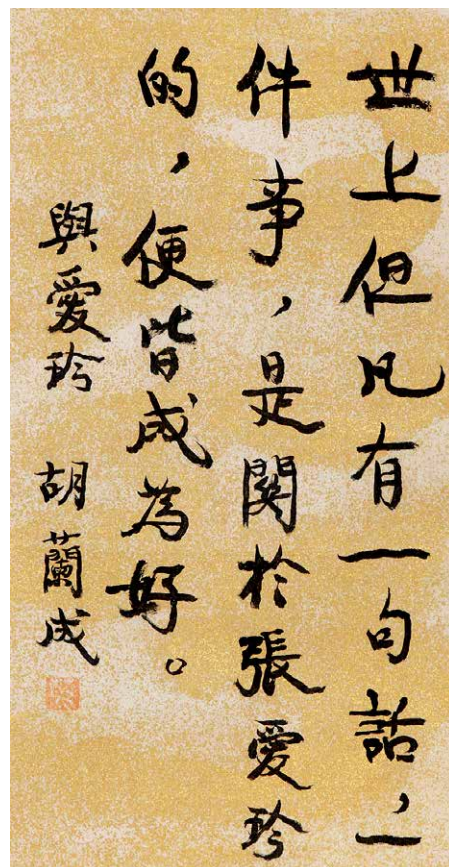 世上但凡有一句話，一
件事，是関於張愛玲
的，便皆成為好。
與愛玲 胡蘭成